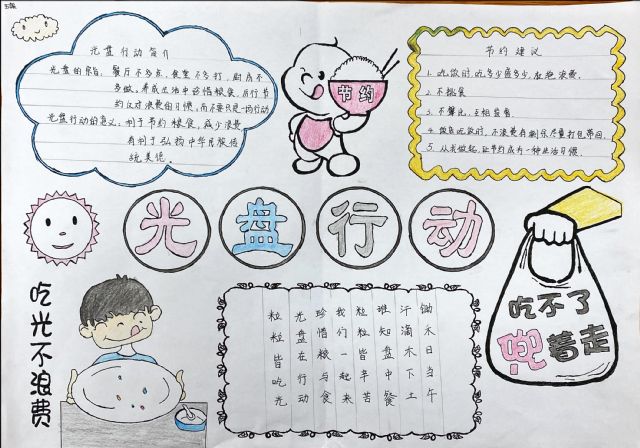 光盘行动简介
光盘的宗旨：餐厅不多点，食堂不多打，厨房不
多做。养成生活中珍惜粮食、厉行节
约反对浪费的习惯，而不要只是一场行动
光盘行动的意义：利于节约粮食，减少浪费
有利于弘扬中华民族传
统美德。
节约
节约建议
1. 吃饭时，吃多少盛多少，杜绝浪费。
2. 不挑食
3. 不攀比，互相监督。
4. 做点吃饭时，不浪费有剩余尽量打包带回。
5. 从我做起，让节约成为一种生活习惯。
光盘行动
吃光不浪费
锄禾日当午
汗滴禾下土
谁知盘中餐
粒粒皆辛苦
我们一起来
珍惜粮与食
光盘在行动
粒粒皆吃光
吃不了
兜着走